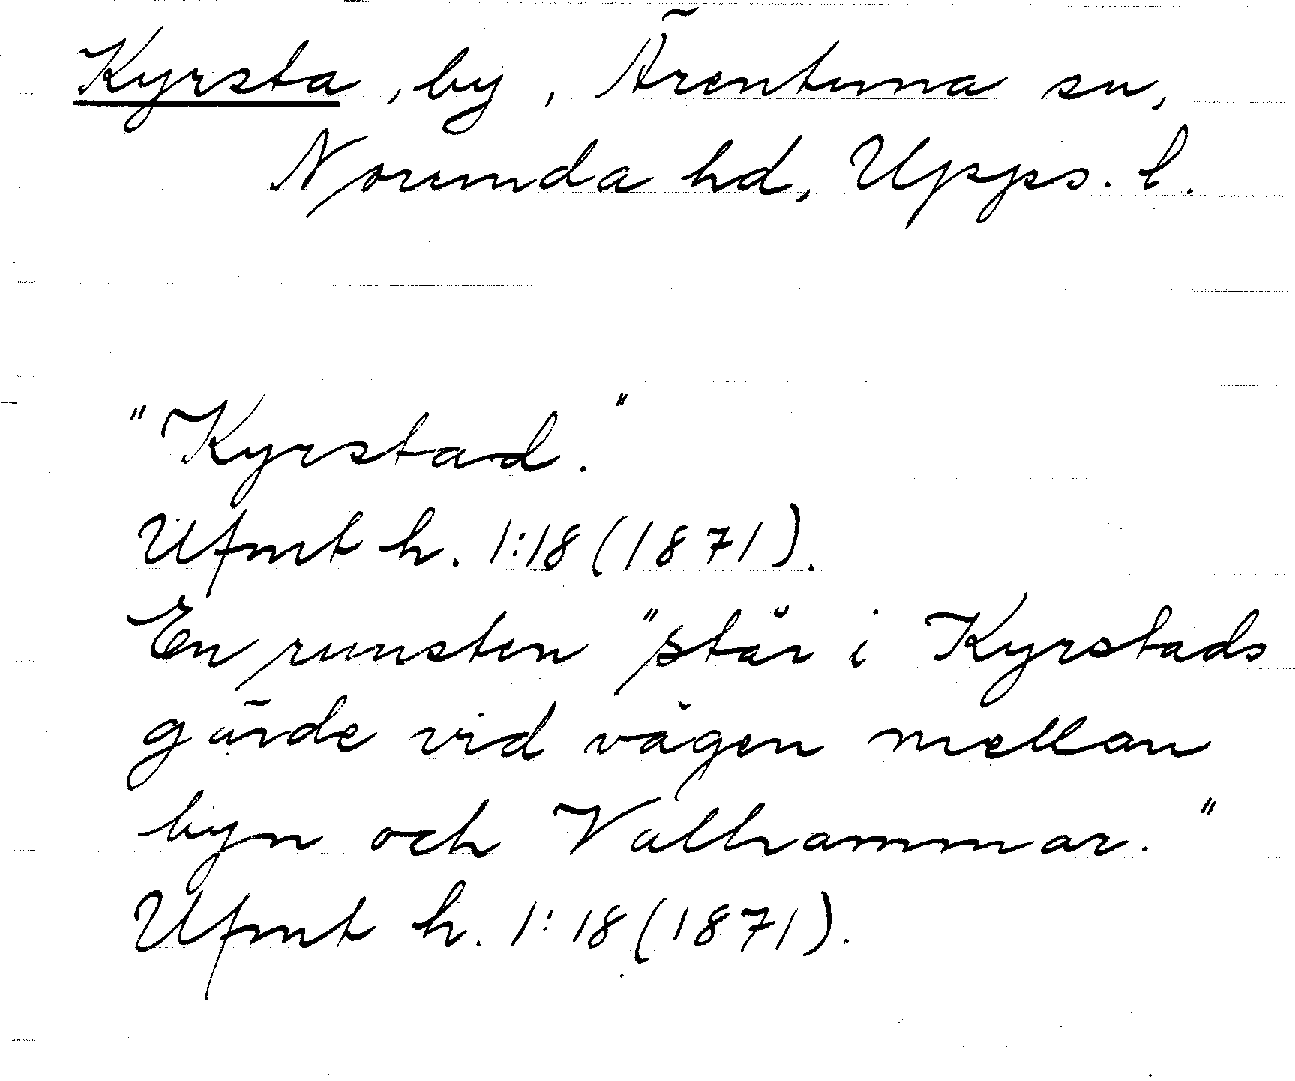 Kyrsta, by, Ärentuna sn,
Norunda hd, Upps. l.
"Kyrstad."
Ufmt h. 1:18 (1871).
En runsten "står i Kyrstads
gärde vid vägen mellan
byn och Valhammar."
Ufmt h. 1:18 (1871).